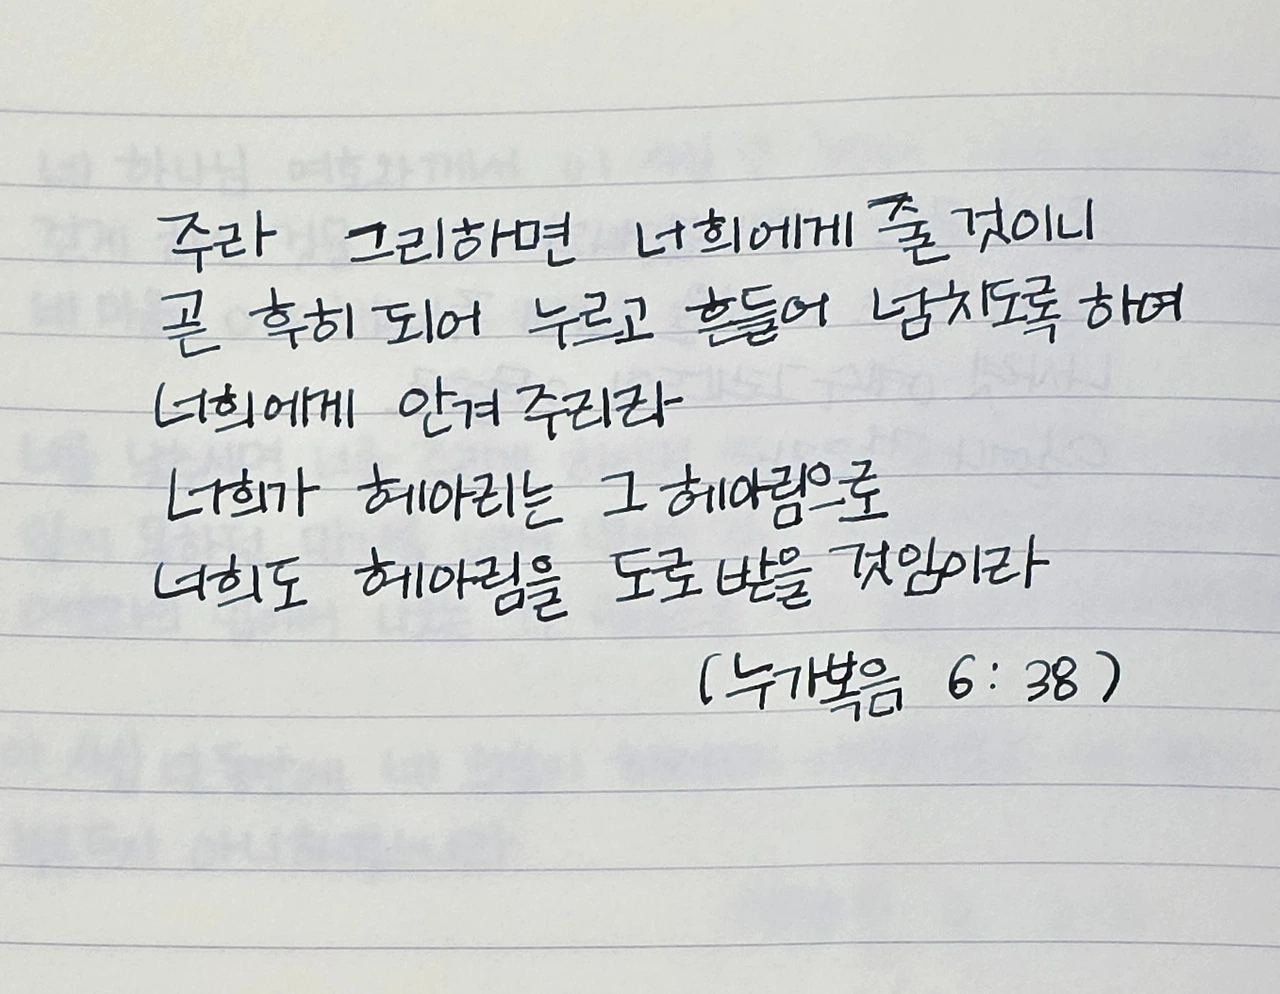 주라 그리하면 너희에게 줄 것이니
곧 후히 되어 누르고 흔들어 넘치도록 하여
너희에게 안겨 주리라
너희가 헤아리는 그 헤아림으로
너희도 헤아림을 도로 받을 것임이라
(누가복음 6: 38)